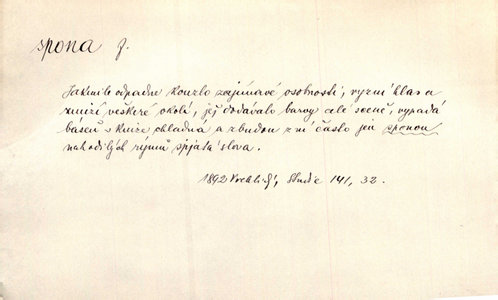 spona f.
Jakmile odpadne kouzlo zajímavé osobnosti, vyzní hlas a
zmizí veškeré okolí, jež dodávalo barvy celé sceně, vypadá
báseň v knize chladná a zbudou z ní často jen sponou
nahodilých rýmů spjatá slova.
1892 Vrchlický, Studie 141, 32.